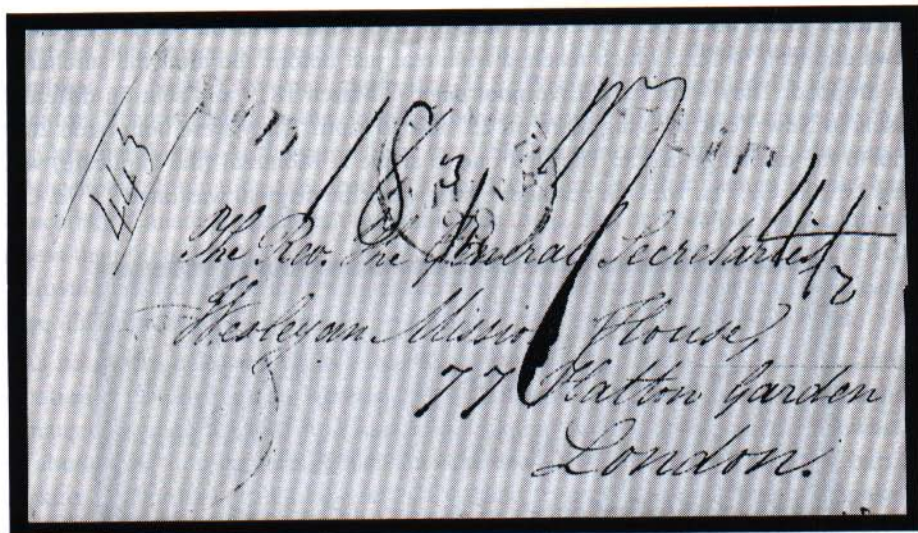 443
18 3/4
4 1/2
The Rev. The General Secretaries
Wesleyan Mission House,
77 Hatton Garden
London.